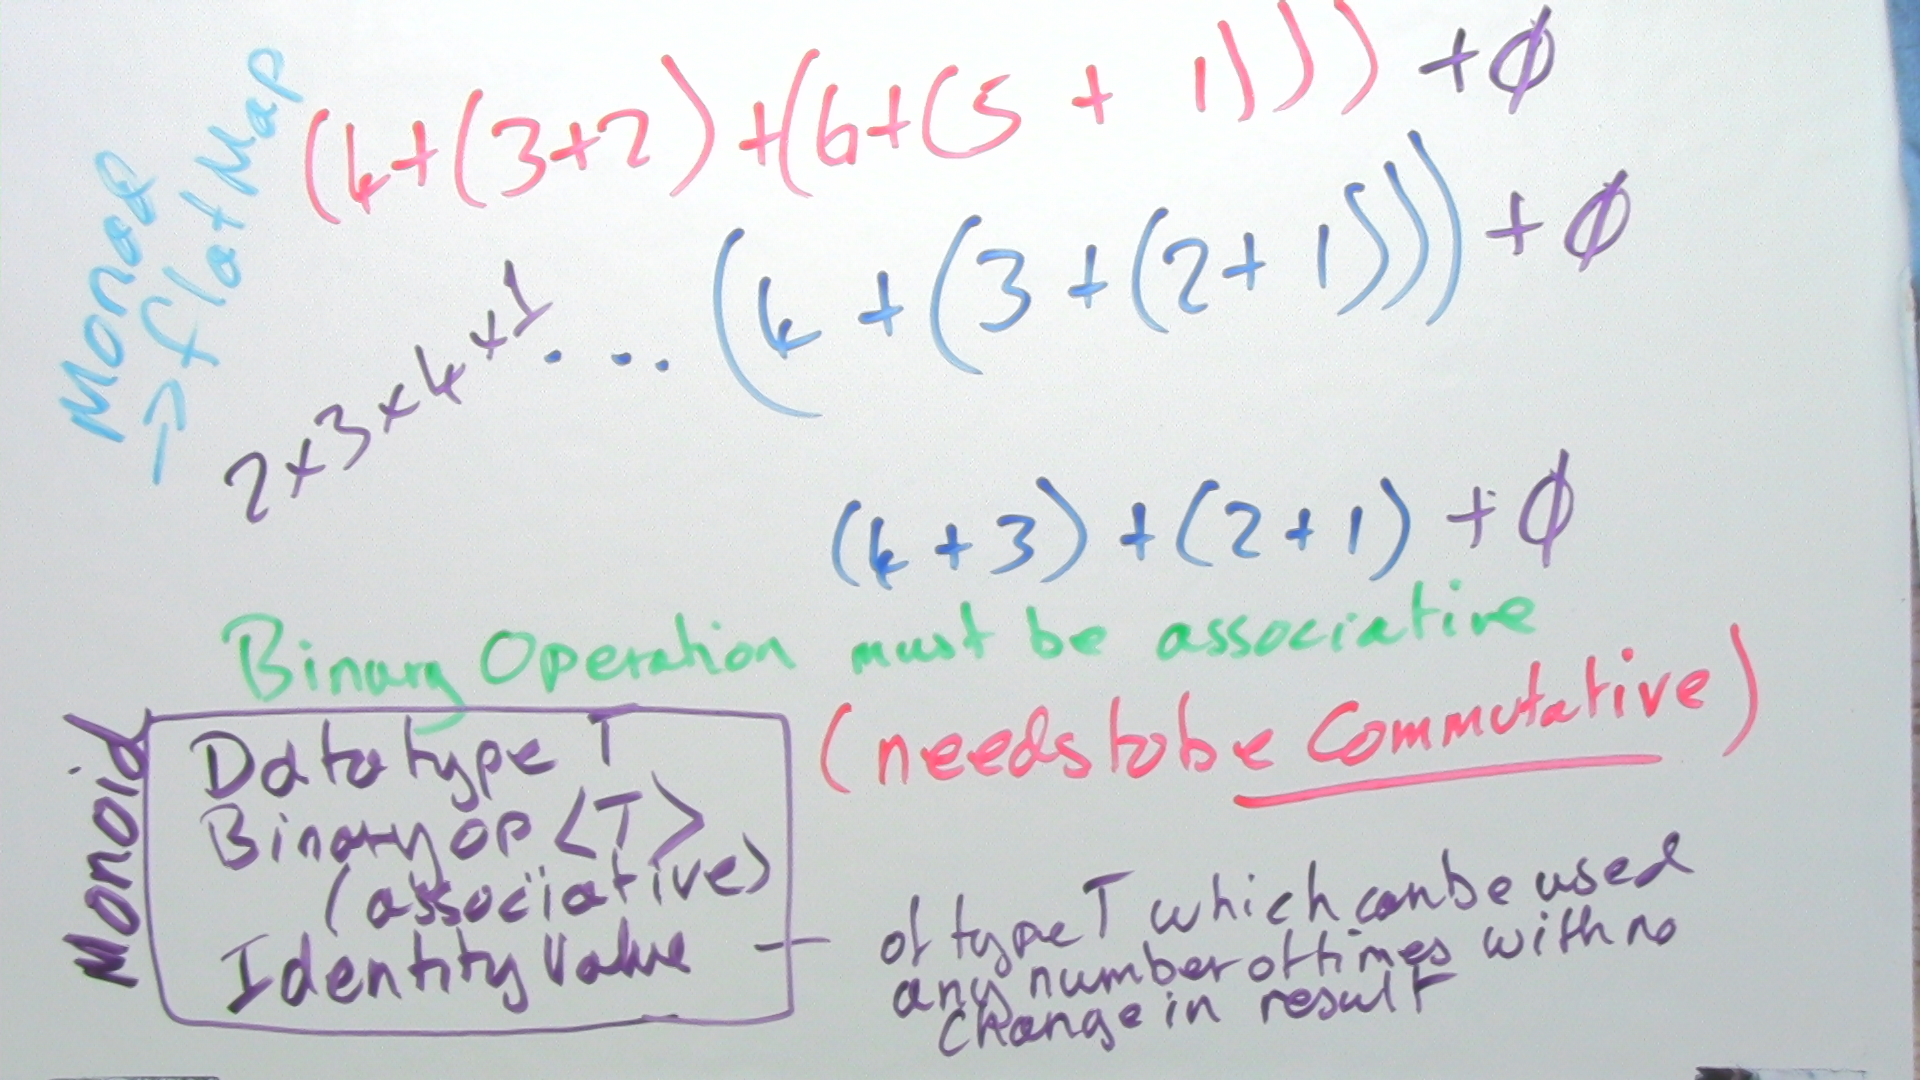 Monad
→ flatMap
(4+(3+2)+(6+(5+1)))) +0
2×3×4×1
... (4+(3+(2+1))) +0
(4+3)+(2+1) +0
Binary Operation must be associative
(needs to be Commutative)
Monoid
Data type T
Binary op <T>
(associative)
Identity Value
— of type T which can be used
any number of times with no
change in result